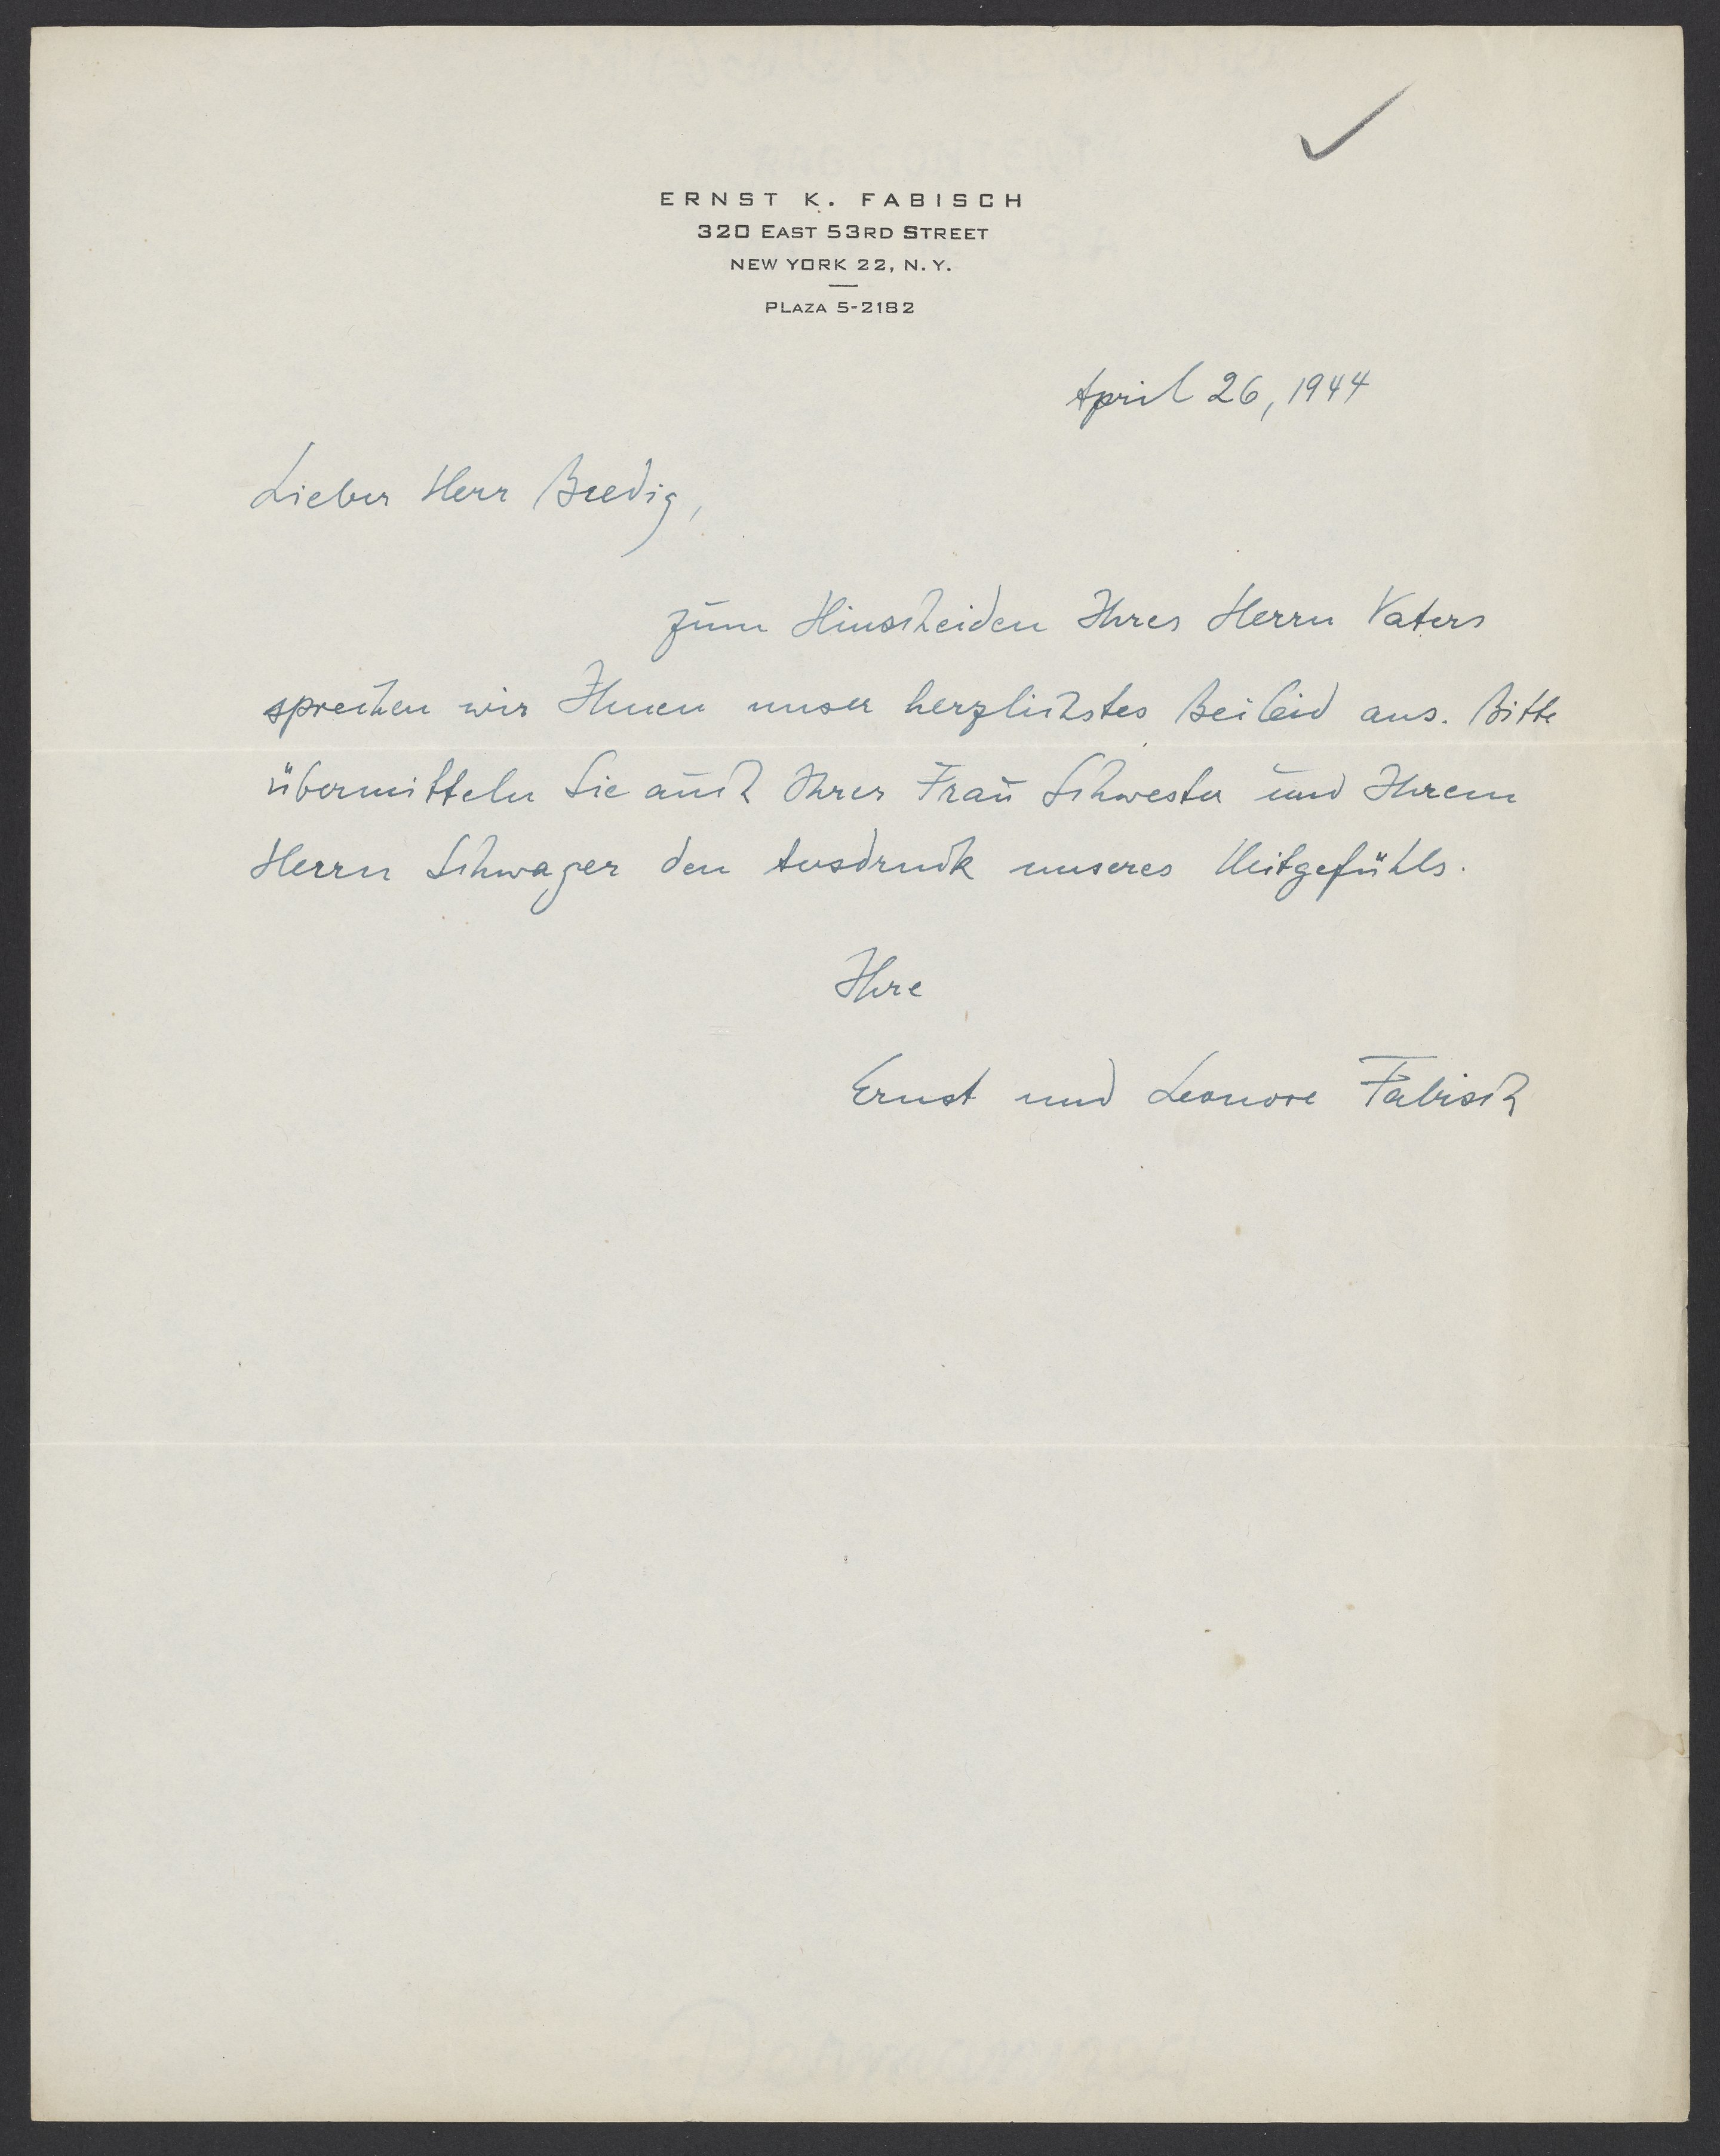 ERNST K. FABISCH
320 EAST 53RD STREET
NEW YORK 22, N.Y.
PLAZA 5-2182
April 26, 1944
Lieber Herr Bredig,
zum Hinscheiden Ihres Herrn Vaters
sprechen wir Ihnen unser herzlichstes Beileid aus. Bitte
übermitteln Sie auch Ihrer Frau Schwester und Ihrem
Herrn Schwager den Ausdruck unseres Mitgefühls.
Ihre
Ernst und Leonore Fabisch